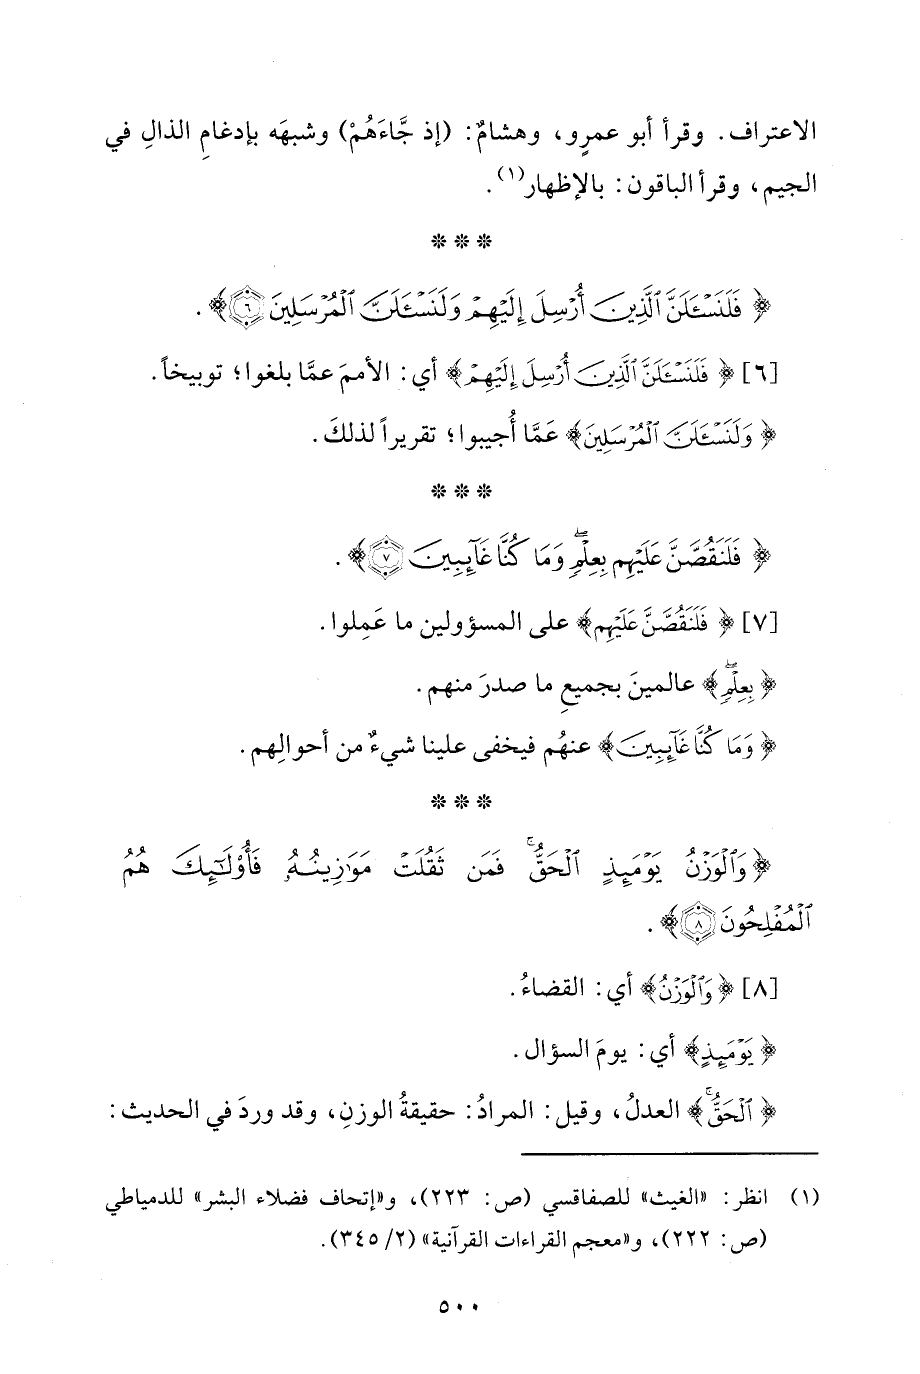 الاعتراف. وقرأ أبو عمرٍو، وهشامٌ: (إذ جَّاءَهُمْ) وشبهَه بإدغامِ الذالِ في
الجيم، وقرأ الباقون: بالإظهار(١).
* * *
﴿ فَلَنَسْـَٔلَنَّ ٱلَّذِينَ أُرْسِلَ إِلَيْهِمْ وَلَنَسْـَٔلَنَّ ٱلْمُرْسَلِينَ ۝٦ ﴾.
[٦] ﴿ فَلَنَسْـَٔلَنَّ ٱلَّذِينَ أُرْسِلَ إِلَيْهِمْ ﴾ أي: الأممَ عمَّا بلغوا؛ توبيخاً.
﴿ وَلَنَسْـَٔلَنَّ ٱلْمُرْسَلِينَ ﴾ عَمَّا أُجيبوا؛ تقريراً لذلكَ.
* * *
﴿ فَلَنَقُصَّنَّ عَلَيْهِم بِعِلْمٍ ۖ وَمَا كُنَّا غَآئِبِينَ ۝٧ ﴾.
[٧] ﴿ فَلَنَقُصَّنَّ عَلَيْهِم ﴾ على المسؤولين ما عَمِلوا.
﴿ بِعِلْمٍ ۖ ﴾ عالمينَ بجميعِ ما صدرَ منهم.
﴿ وَمَا كُنَّا غَآئِبِينَ ﴾ عنهُم فيخفى علينا شيءٌ من أحوالِهم.
* * *
﴿ وَٱلْوَزْنُ يَوْمَئِذٍ ٱلْحَقُّ ۚ فَمَن ثَقُلَتْ مَوَٰزِينُهُۥ فَأُو۟لَـٰٓئِكَ هُمُ
ٱلْمُفْلِحُونَ ۝٨ ﴾.
[٨] ﴿ وَٱلْوَزْنُ ﴾ أي: القضاءُ.
﴿ يَوْمَئِذٍ ﴾ أي: يومَ السؤال.
﴿ ٱلْحَقُّ ۚ ﴾ العدلُ، وقيل: المرادُ: حقيقةُ الوزنِ، وقد وردَ في الحديث:
(١) انظر: «الغيث» للصفاقسي (ص: ٢٢٣)، و«إتحاف فضلاء البشر» للدمياطي
(ص: ٢٢٢)، و«معجم القراءات القرآنية» (٢/ ٣٤٥).
٥٠٠